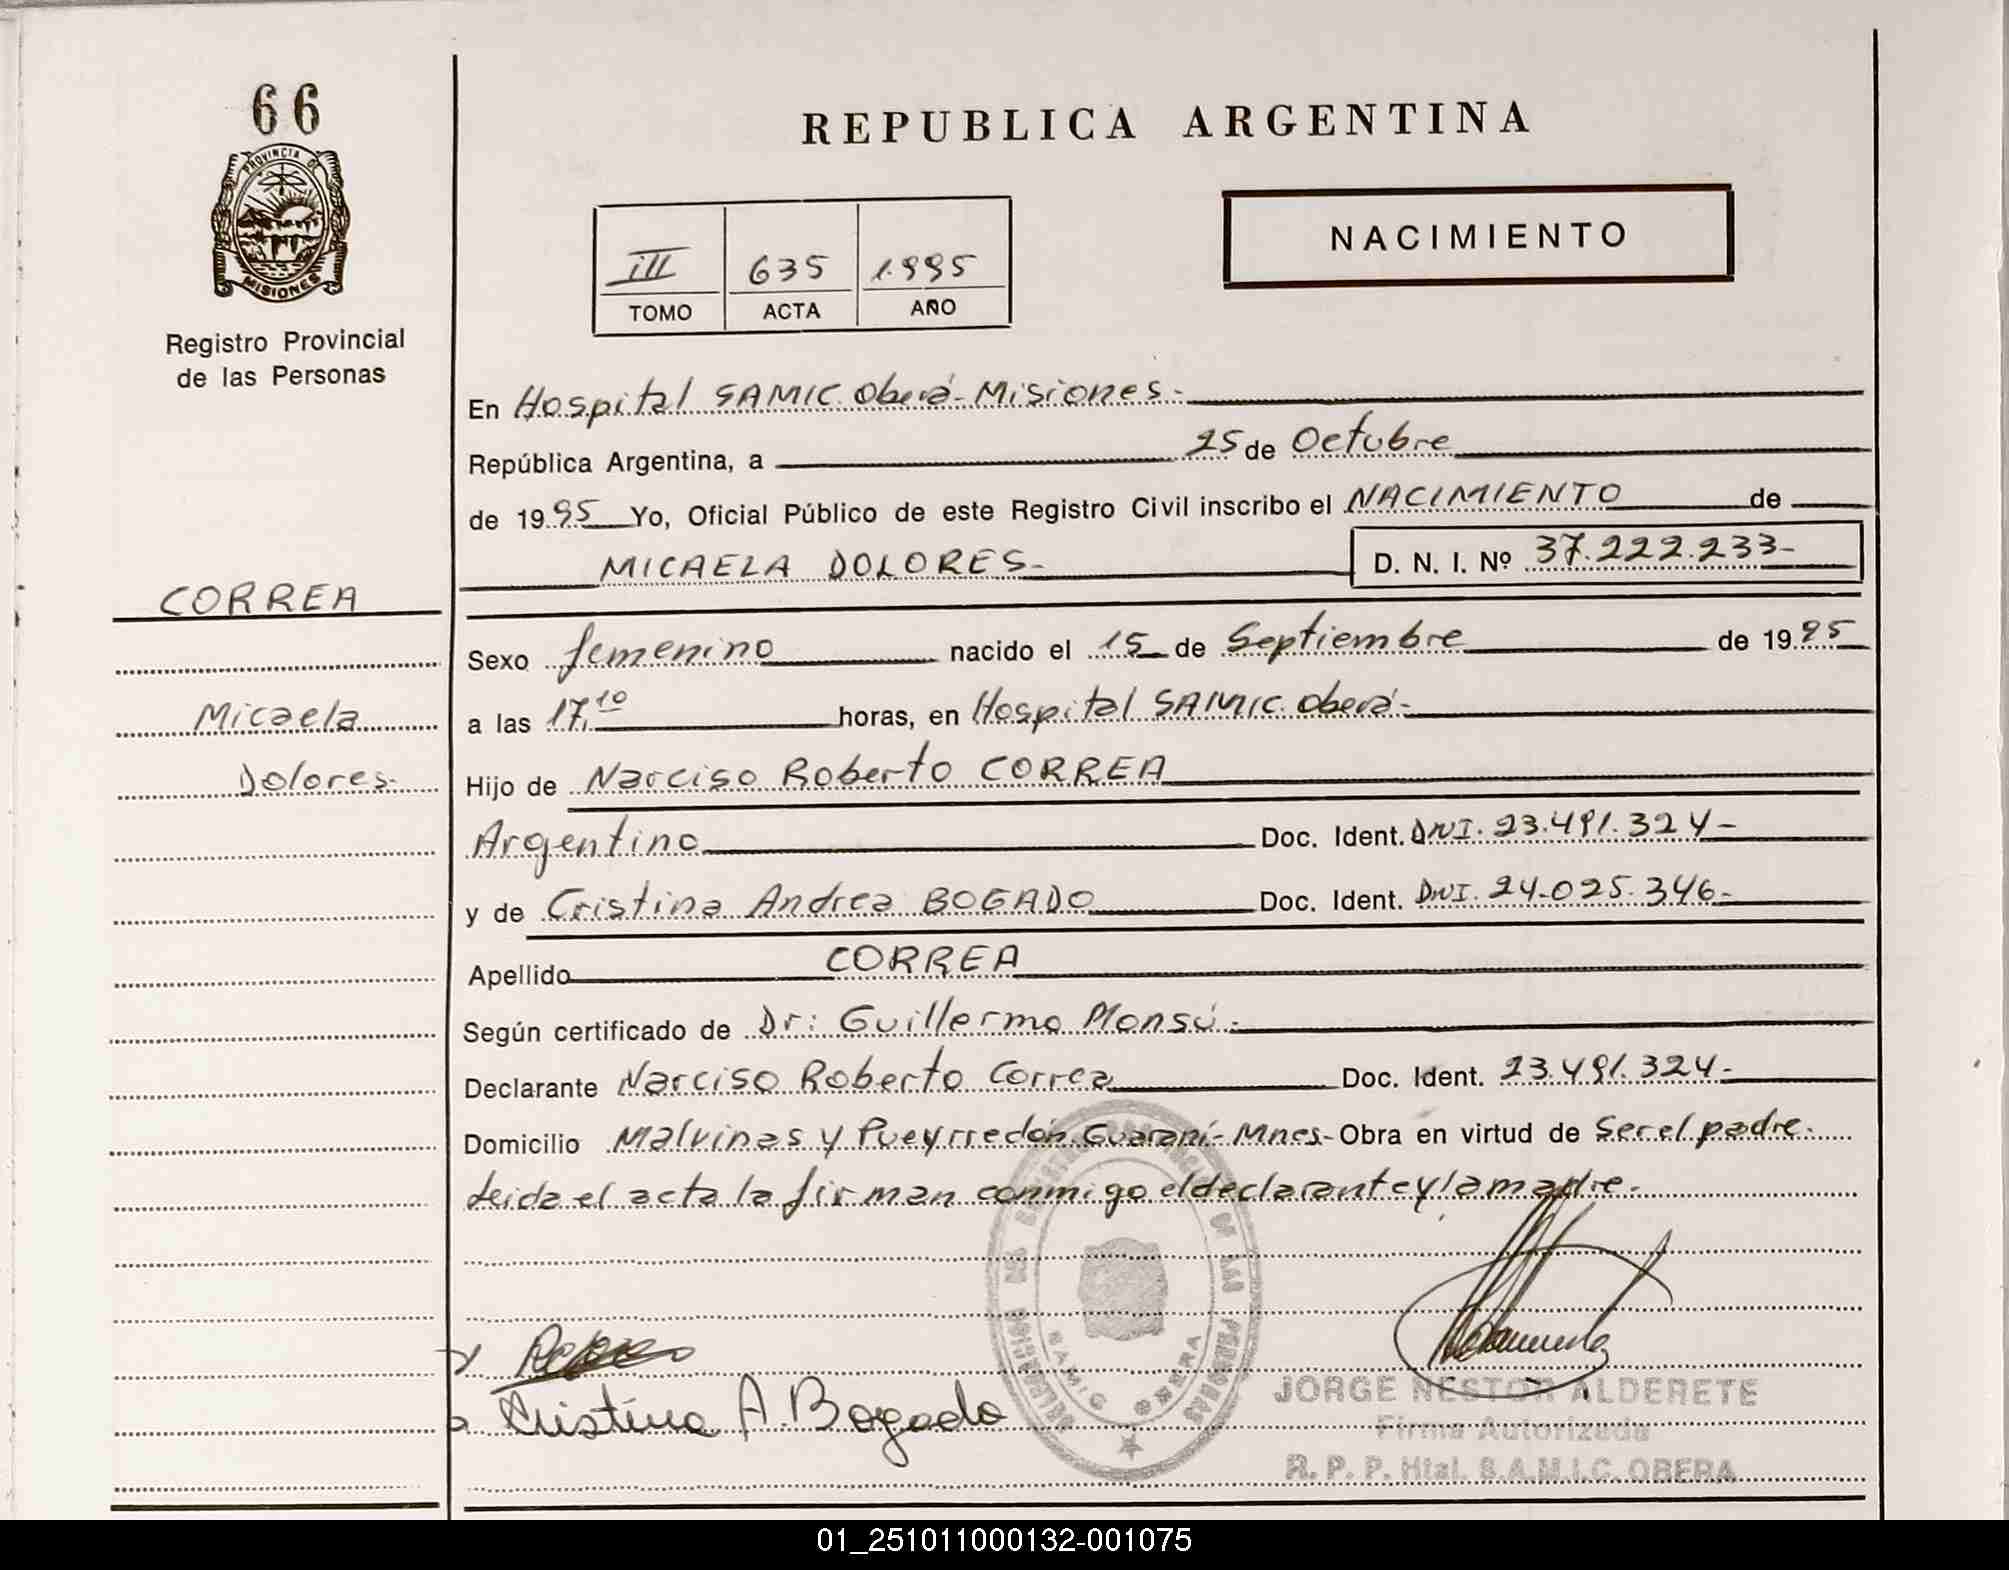 66
PROVINCIA DE
MISIONES
Registro Provincial
de las Personas
CORREA
Micaela
Dolores.-
REPUBLICA ARGENTINA
NACIMIENTO
III 635 1.995
TOMO ACTA AÑO
En Hospital SAMIC. Oberá - Misiones.-
República Argentina, a 25 de Octubre
de 1995 Yo, Oficial Público de este Registro Civil inscribo el NACIMIENTO de
MICAELA DOLORES.- D. N. I. Nº 37.222.233-
Sexo femenino nacido el 15 de Septiembre de 1995
a las 17,10 horas, en Hospital SAMIC. Oberá.-
Hijo de Narciso Roberto CORREA
Argentino Doc. Ident. DNI. 23.491.324-
y de Cristina Andrea BOGADO Doc. Ident. DNI. 24.025.346-
Apellido CORREA
Según certificado de Dr: Guillermo Monsú.-
Declarante Narciso Roberto Correa Doc. Ident. 23.491.324-
Domicilio Malvinas y Pueyrredón. Guaraní - Mnes- Obra en virtud de Ser el padre.
Leida el acta la firman conmigo el declarante y la madre.-
Cristina A. Bogado
JORGE NESTOR ALDERETE
Firma Autorizada
R. P. P. Htal. S.A.M.I.C. OBERA
01_251011000132-001075